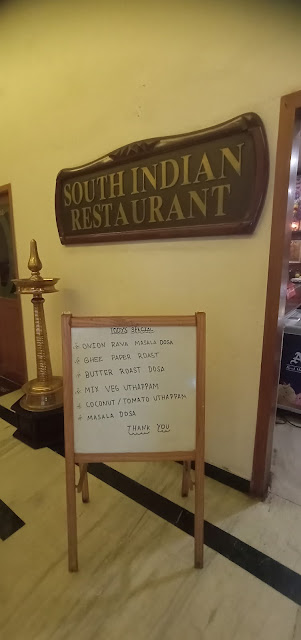 SOUTH INDIAN
RESTAURANT
TODY'S SPECIAL
ONION RAVA MASALA DOSA
GHEE PAPER ROAST
BUTTER ROAST DOSA
MIX VEG UTHAPPAM
COCONUT / TOMATO UTHAPPAM
MASALA DOSA
THANK YOU